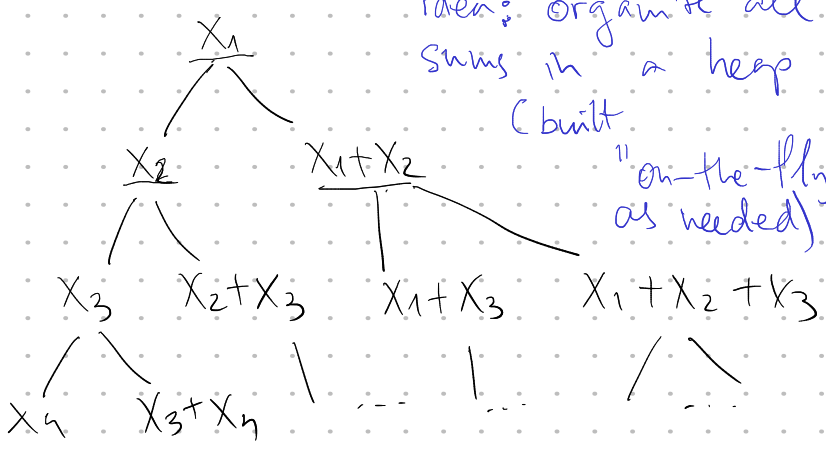 idea: organise all
sums in a heap
(built
"on-the-fly"
as needed)
X1
X2 X1+X2
X3 X2+X3 X1+X3 X1+X2+X3
X4 X3+X4 --- ... ....